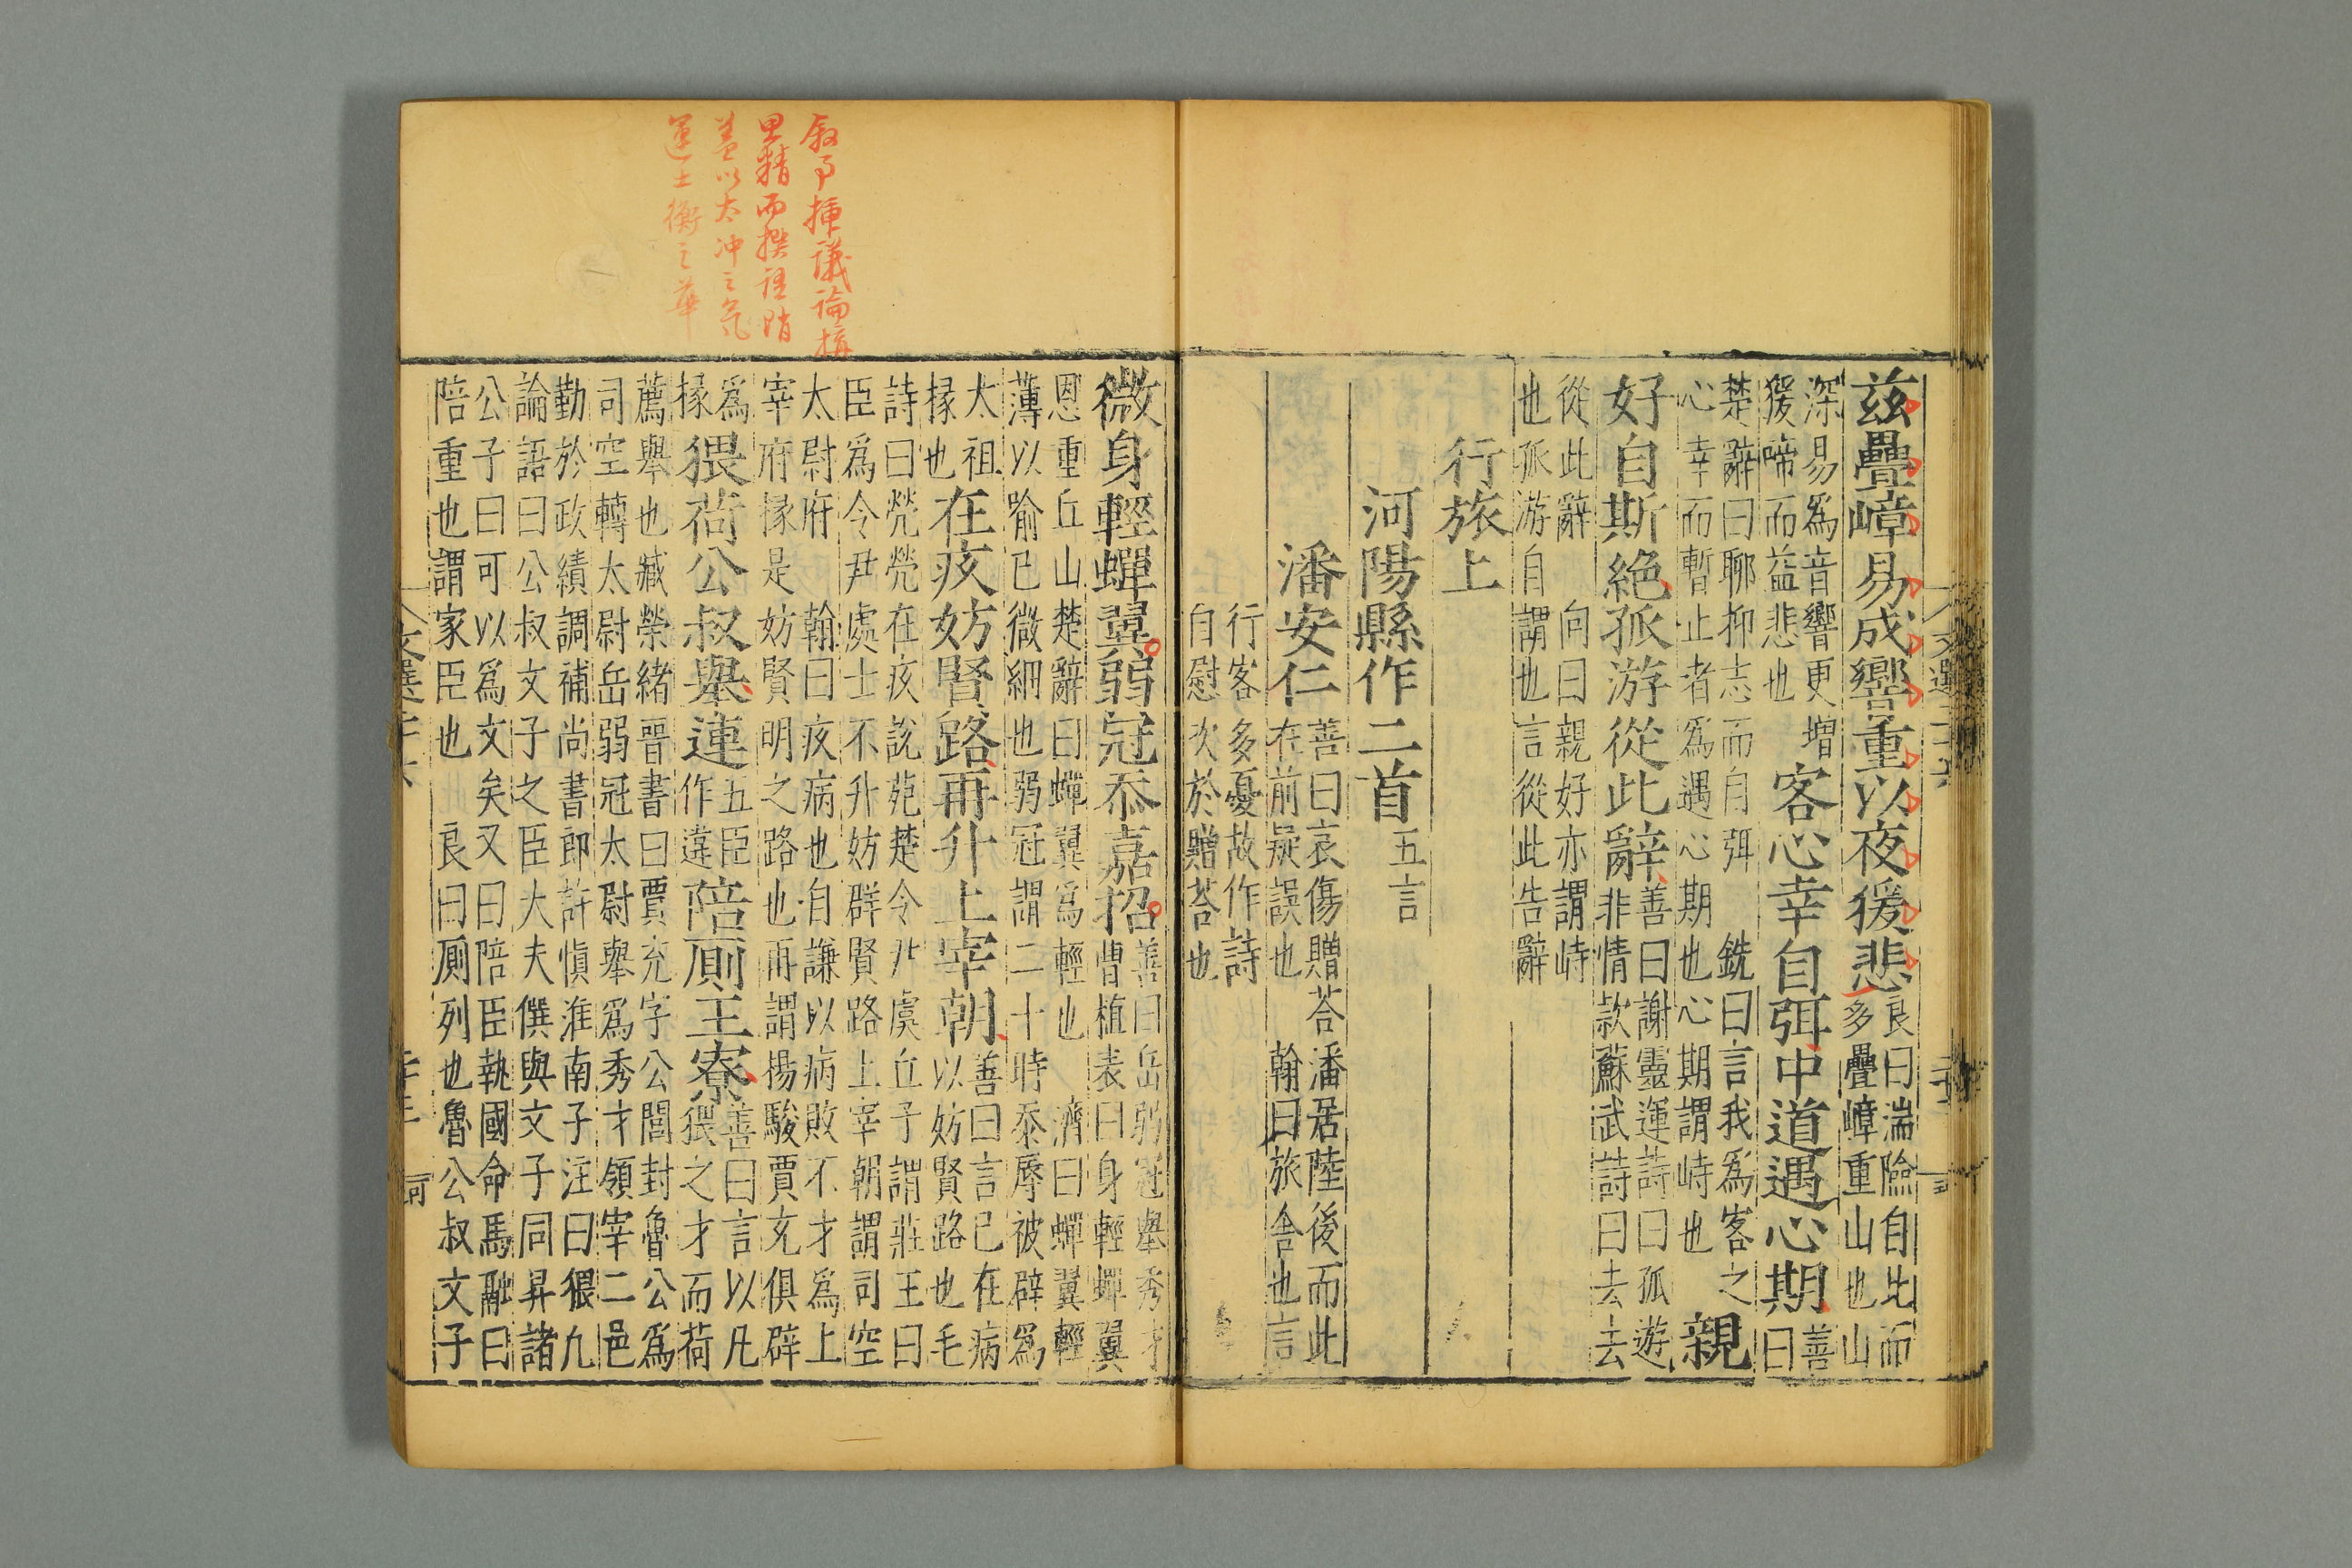 茲疊嶂易成響重以夜猨悲良曰湍險自比而
多疊嶂重山也山
深易為音響更增
猨啼而益悲也客心幸自弭中道遇心期善
曰
楚辭曰聊抑志而自弭銑曰言我為客之
心幸而暫止者為遇心期也心期謂峙也親
好自斯絕孤游從此辭善曰謝靈運詩曰孤遊
非情款蘇武詩曰去去
從此辭向曰親好亦謂峙
也孤游自謂也言從此告辭
行旅上
河陽縣作二首五言
潘安仁善曰哀傷贈荅潘居陸後而此
在前疑誤也翰曰旅舍也言
行客多憂故作詩
自慰次於贈荅也
文選二十六
微身輕蟬翼弱冠忝嘉招善曰岳弱冠舉秀才
曹植表曰身輕蟬翼
恩重丘山楚辭曰蟬翼為輕也濟曰蟬翼輕
薄以喻已微細也弱冠謂二十時忝辱被辟為
太祖
掾也在疚妨賢路再升上宰朝善曰言已在病
以妨賢路也毛
詩曰煢煢在疚說苑楚令尹虞丘子謂莊王曰
臣為令尹處士不升妨群賢路上宰朝謂司空
太尉府翰曰疚病也自謙以病敗不才為上
宰府掾是妨賢明之路也再謂楊駿賈充俱辟
為
掾猥荷公叔舉連五臣
作違陪厠王寮善曰言以凡
猥之才而荷
薦舉也臧榮緒晉書曰賈充字公閭封魯公為
司空轉太尉岳弱冠太尉舉為秀才領宰二邑
勤於政績調補尚書郎許慎淮南子注曰猥凡
論語曰公叔文子之臣大夫僎與文子同昇諸
公子曰可以為文矣又曰陪臣執國命馬融曰
陪重也謂家臣也良曰厠列也魯公叔文子
敘事插議論
思精而撰理
蓋以太冲之氣
運士衡之華